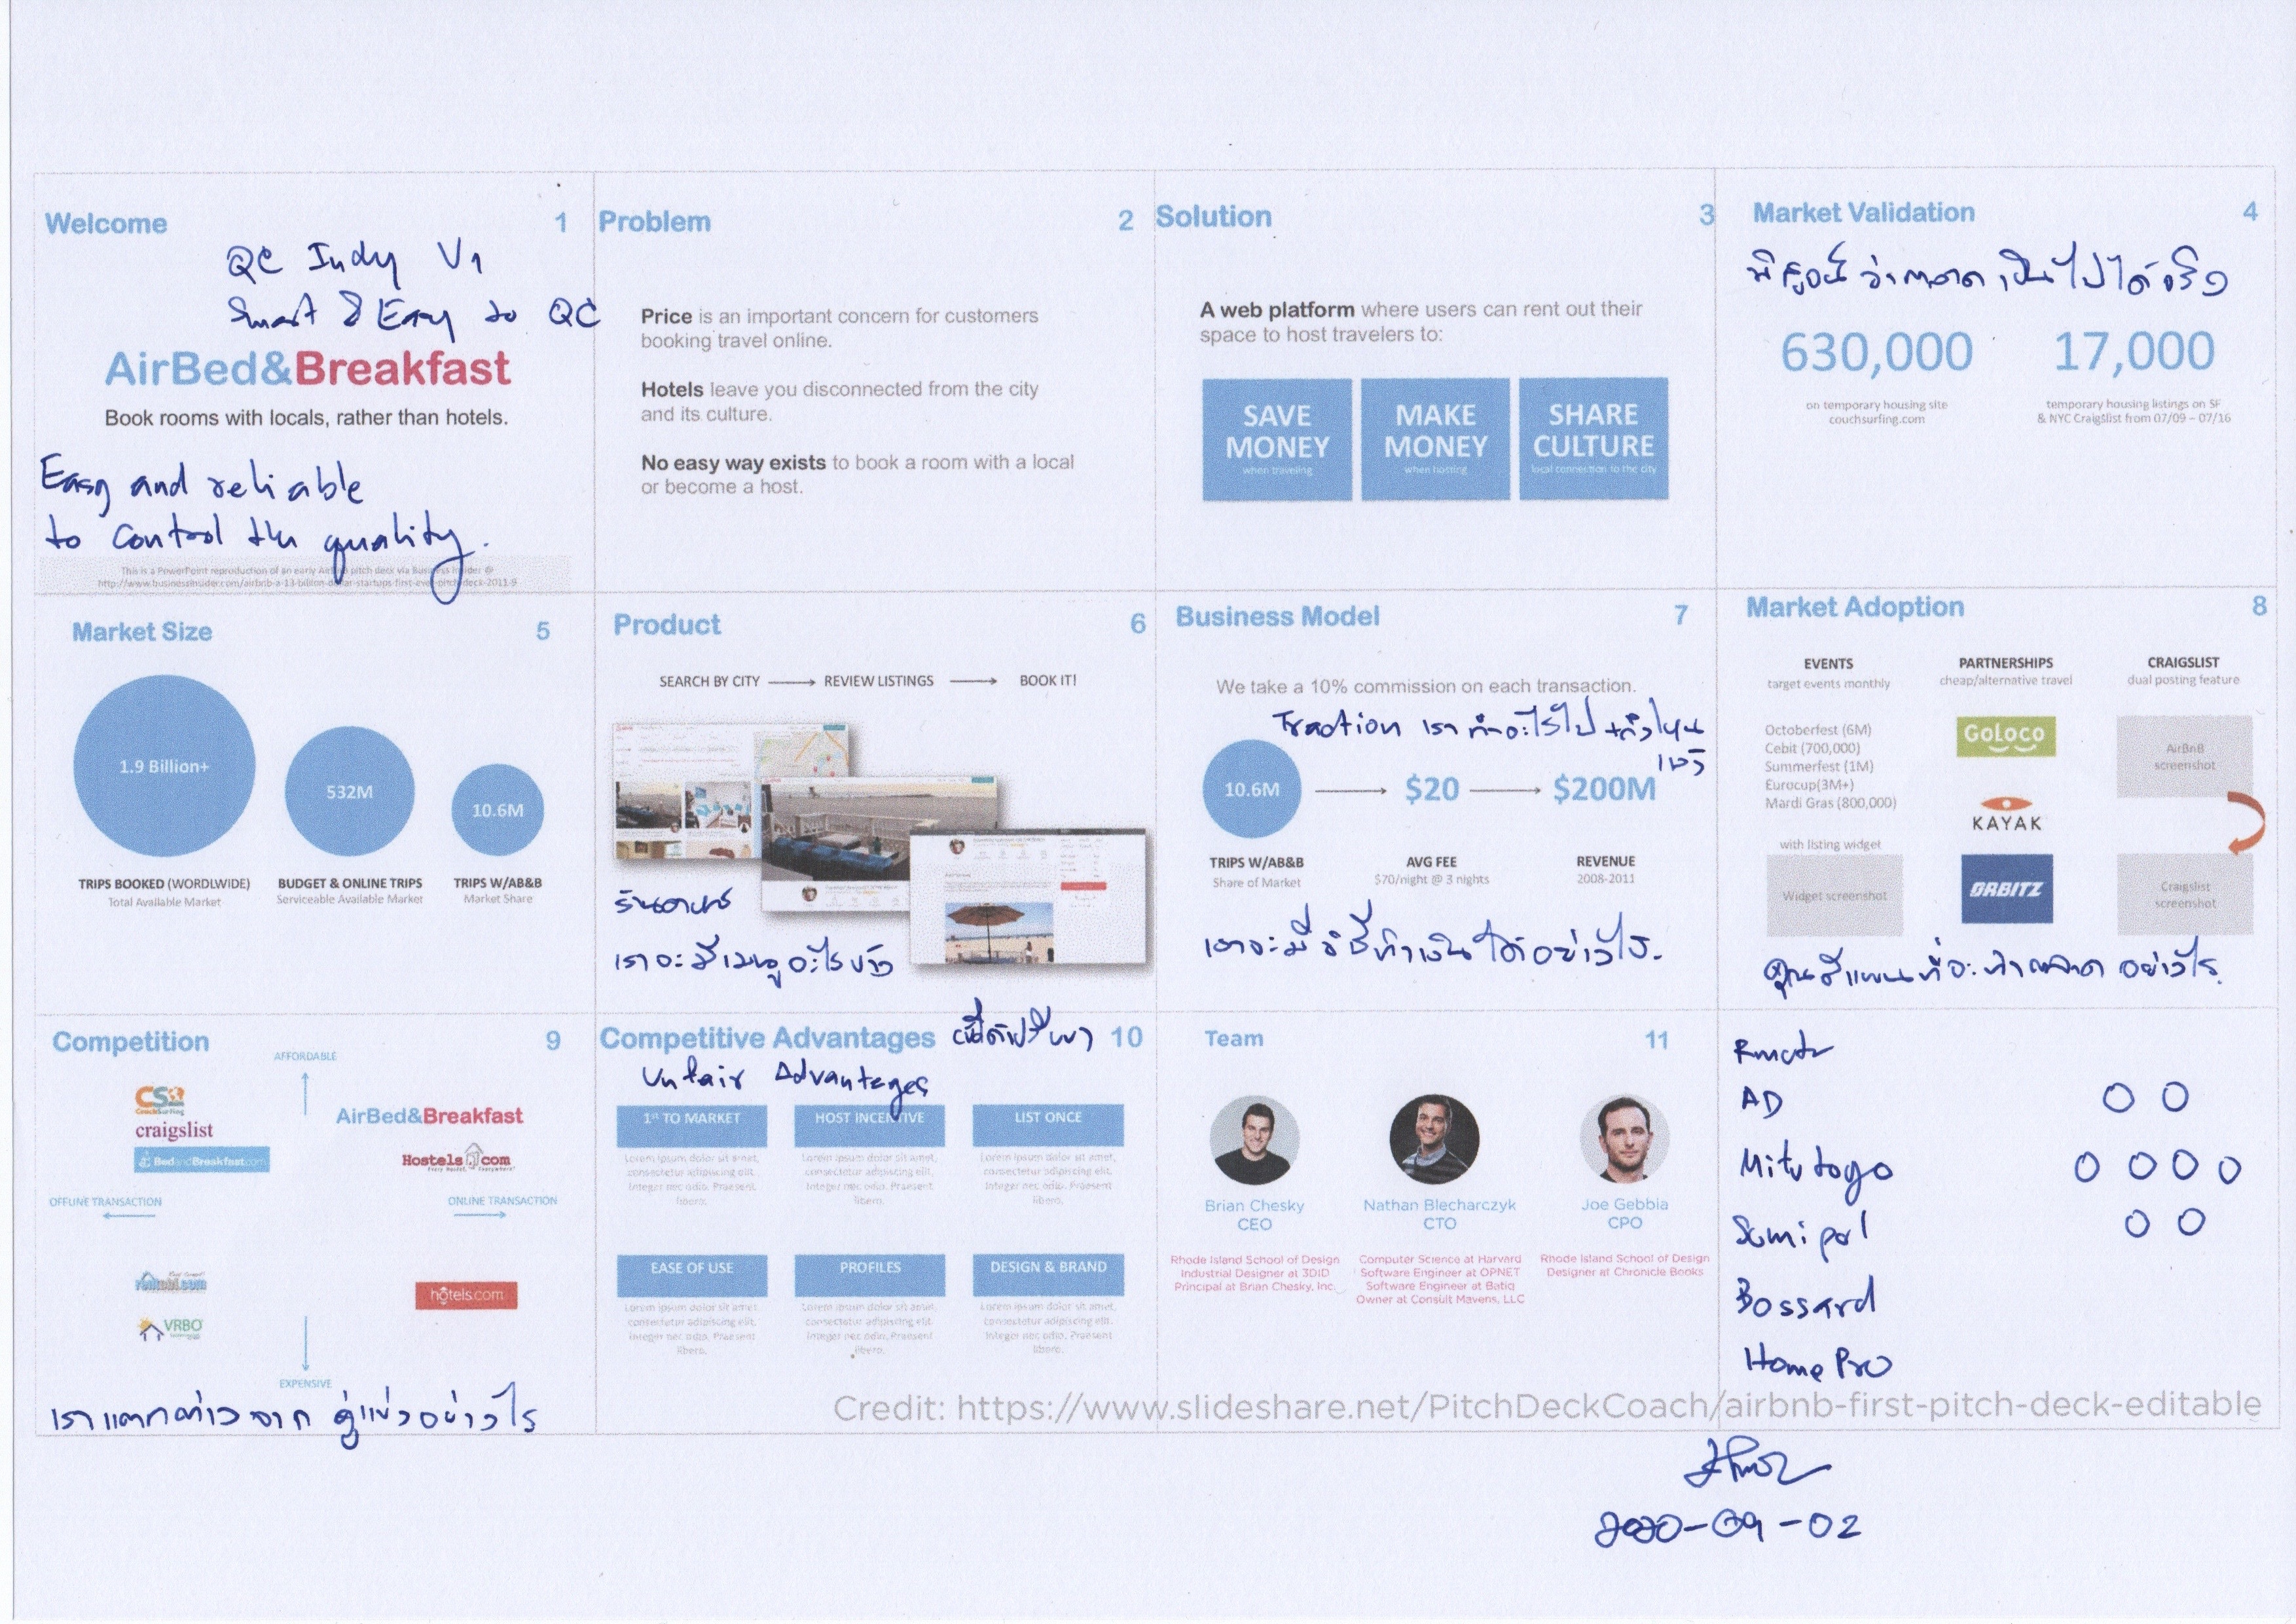 Welcome 1
QC Indy V1
Smart & Easy to QC
AirBed&Breakfast
Book rooms with locals, rather than hotels.
Easy and reliable
to control the quality.
This is a PowerPoint reproduction of an early AirBnB pitch deck via Business Insider @
http://www.businessinsider.com/airbnb-a-13-billion-dollar-startups-first-ever-pitch-deck-2011-9
Problem 2
Price is an important concern for customers
booking travel online.
Hotels leave you disconnected from the city
and its culture.
No easy way exists to book a room with a local
or become a host.
Solution 3
A web platform where users can rent out their
space to host travelers to:
SAVE MONEY
when traveling
MAKE MONEY
when hosting
SHARE CULTURE
local connection to the city
Market Validation 4
พิสูจน์ว่าตลาดเป็นไปได้จริง
630,000
on temporary housing site
couchsurfing.com
17,000
temporary housing listings on SF
& NYC Craigslist from 07/09 – 07/16
Market Size 5
1.9 Billion+
532M
10.6M
TRIPS BOOKED (WORDLWIDE)
Total Available Market
BUDGET & ONLINE TRIPS
Serviceable Available Market
TRIPS W/AB&B
Market Share
Product 6
SEARCH BY CITY
REVIEW LISTINGS
BOOK IT!
ร้านอาหาร
เราจะมีเมนูอะไรบ้าง
Business Model 7
We take a 10% commission on each transaction.
Traction เราทำอะไรไป
10.6M
$20
$200M
TRIPS W/AB&B
Share of Market
AVG FEE
$70/night @ 3 nights
REVENUE
2008-2011
เราจะมีวิธีทำเงินได้อย่างไร.
Market Adoption 8
EVENTS
target events monthly
Octoberfest (6M)
Cebit (700,000)
Summerfest (1M)
Eurocup(3M+)
Mardi Gras (800,000)
with listing widget
Widget screenshot
PARTNERSHIPS
cheap/alternative travel
GoLoco
KAYAK
ORBITZ
CRAIGSLIST
dual posting feature
AirBnB
screenshot
Craigslist
screenshot
คุณมีแผนที่จะทำตลาด อย่างไร.
Competition 9
AFFORDABLE
CS
CouchSurfing
craigslist
BedandBreakfast.com
AirBed&Breakfast
Hostels.com
OFFLINE TRANSACTION
ONLINE TRANSACTION
rentobi.com
VRBO
hotels.com
EXPENSIVE
เราแตกต่างจาก คู่แข่งอย่างไร
Competitive Advantages 10
Unfair Advantages
1st TO MARKET
Lorem ipsum dolor sit amet,
consectetur adipiscing elit.
Integer nec odio. Praesent
libero.
HOST INCENTIVE
Lorem ipsum dolor sit amet,
consectetur adipiscing elit.
Integer nec odio. Praesent
libero.
LIST ONCE
Lorem ipsum dolor sit amet,
consectetur adipiscing elit.
Integer nec odio. Praesent
libero.
EASE OF USE
Lorem ipsum dolor sit amet,
consectetur adipiscing elit.
Integer nec odio. Praesent
libero.
PROFILES
Lorem ipsum dolor sit amet,
consectetur adipiscing elit.
Integer nec odio. Praesent
libero.
DESIGN & BRAND
Lorem ipsum dolor sit amet,
consectetur adipiscing elit.
Integer nec odio. Praesent
libero.
Team 11
Brian Chesky
CEO
Rhode Island School of Design
Industrial Designer at 3DID
Principal at Brian Chesky, Inc.
Nathan Blecharczyk
CTO
Computer Science at Harvard
Software Engineer at OPNET
Software Engineer at Batiq
Owner at Consult Mavens, LLC
Joe Gebbia
CPO
Rhode Island School of Design
Designer at Chronicle Books
AD O O
Mitutogo O O O O
Sumipol O O
Bossard
HomePro
Credit: https://www.slideshare.net/PitchDeckCoach/airbnb-first-pitch-deck-editable
2020-09-02